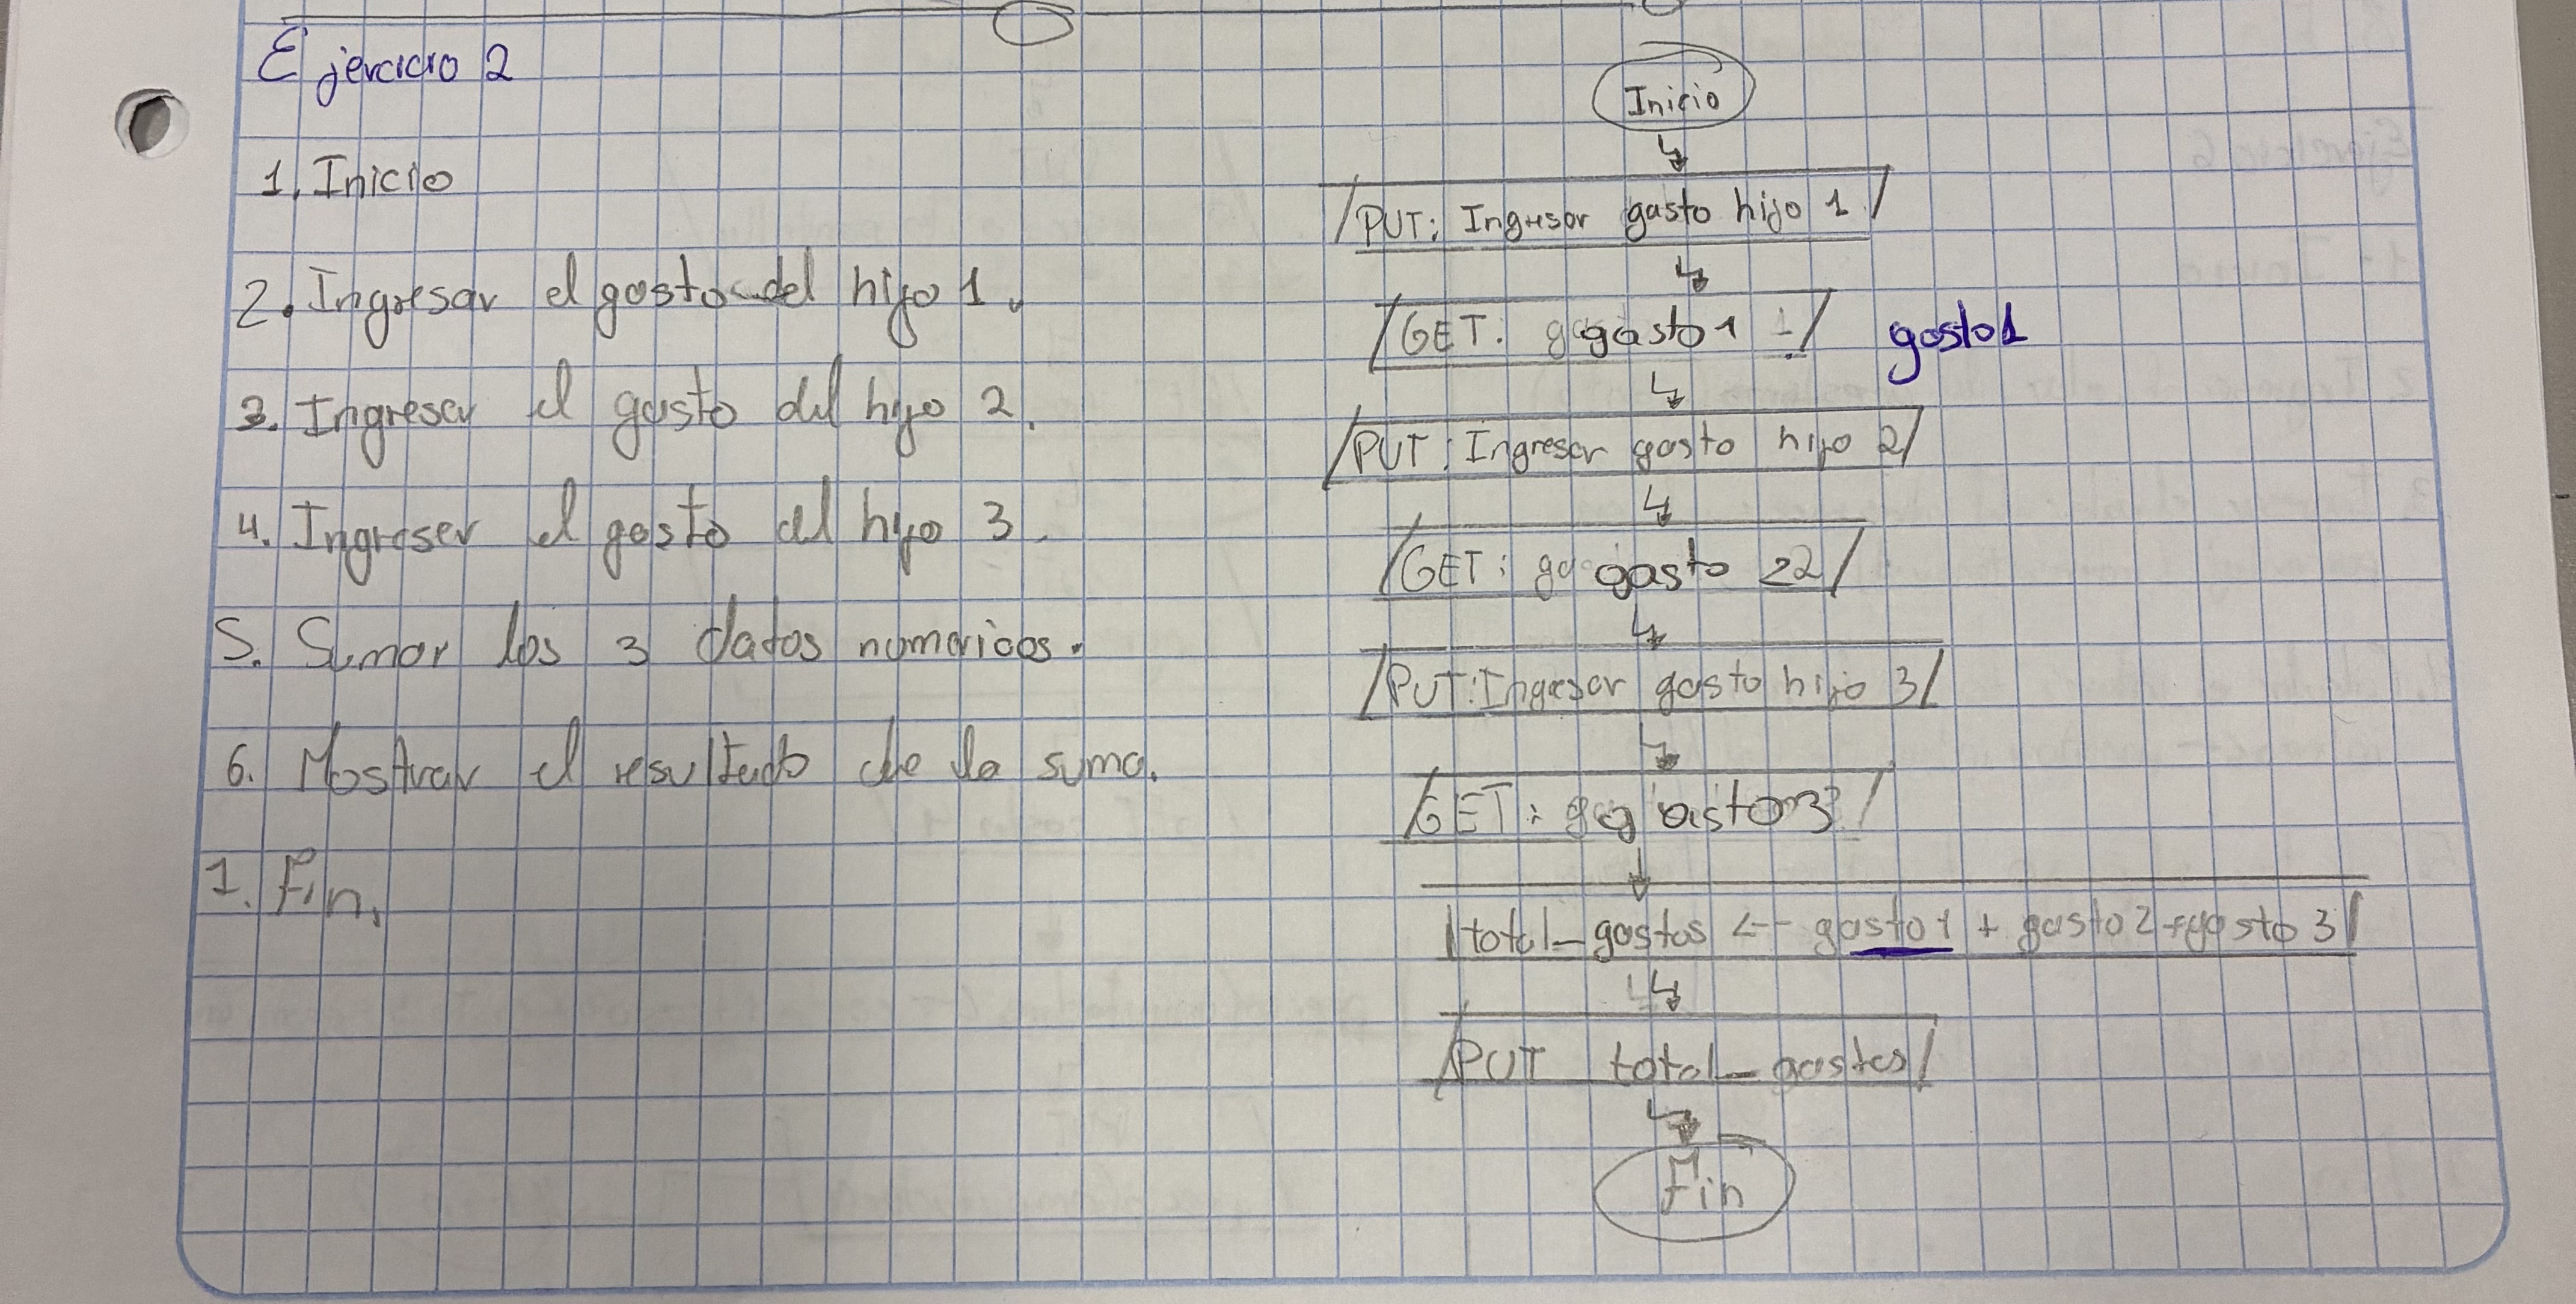 Ejercicio 2
1. Inicio
2. Ingresar el gasto del hijo 1.
3. Ingresar el gasto del hijo 2.
4. Ingresar el gasto del hijo 3.
5. Sumar los 3 datos numericos.
6. Mostrar el resultado de la suma.
7. Fin.
Inicio
PUT: Ingresar gasto hijo 1
GET: gasto1 gasto1
PUT: Ingresar gasto hijo 2
GET: gasto 2
PUT: Ingresar gasto hijo 3
GET: gasto3
total_gastos <-- gasto1 + gasto2 + gasto 3
PUT total_gastos
Fin